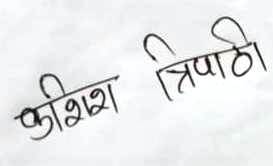 कशिश त्रिपाठी